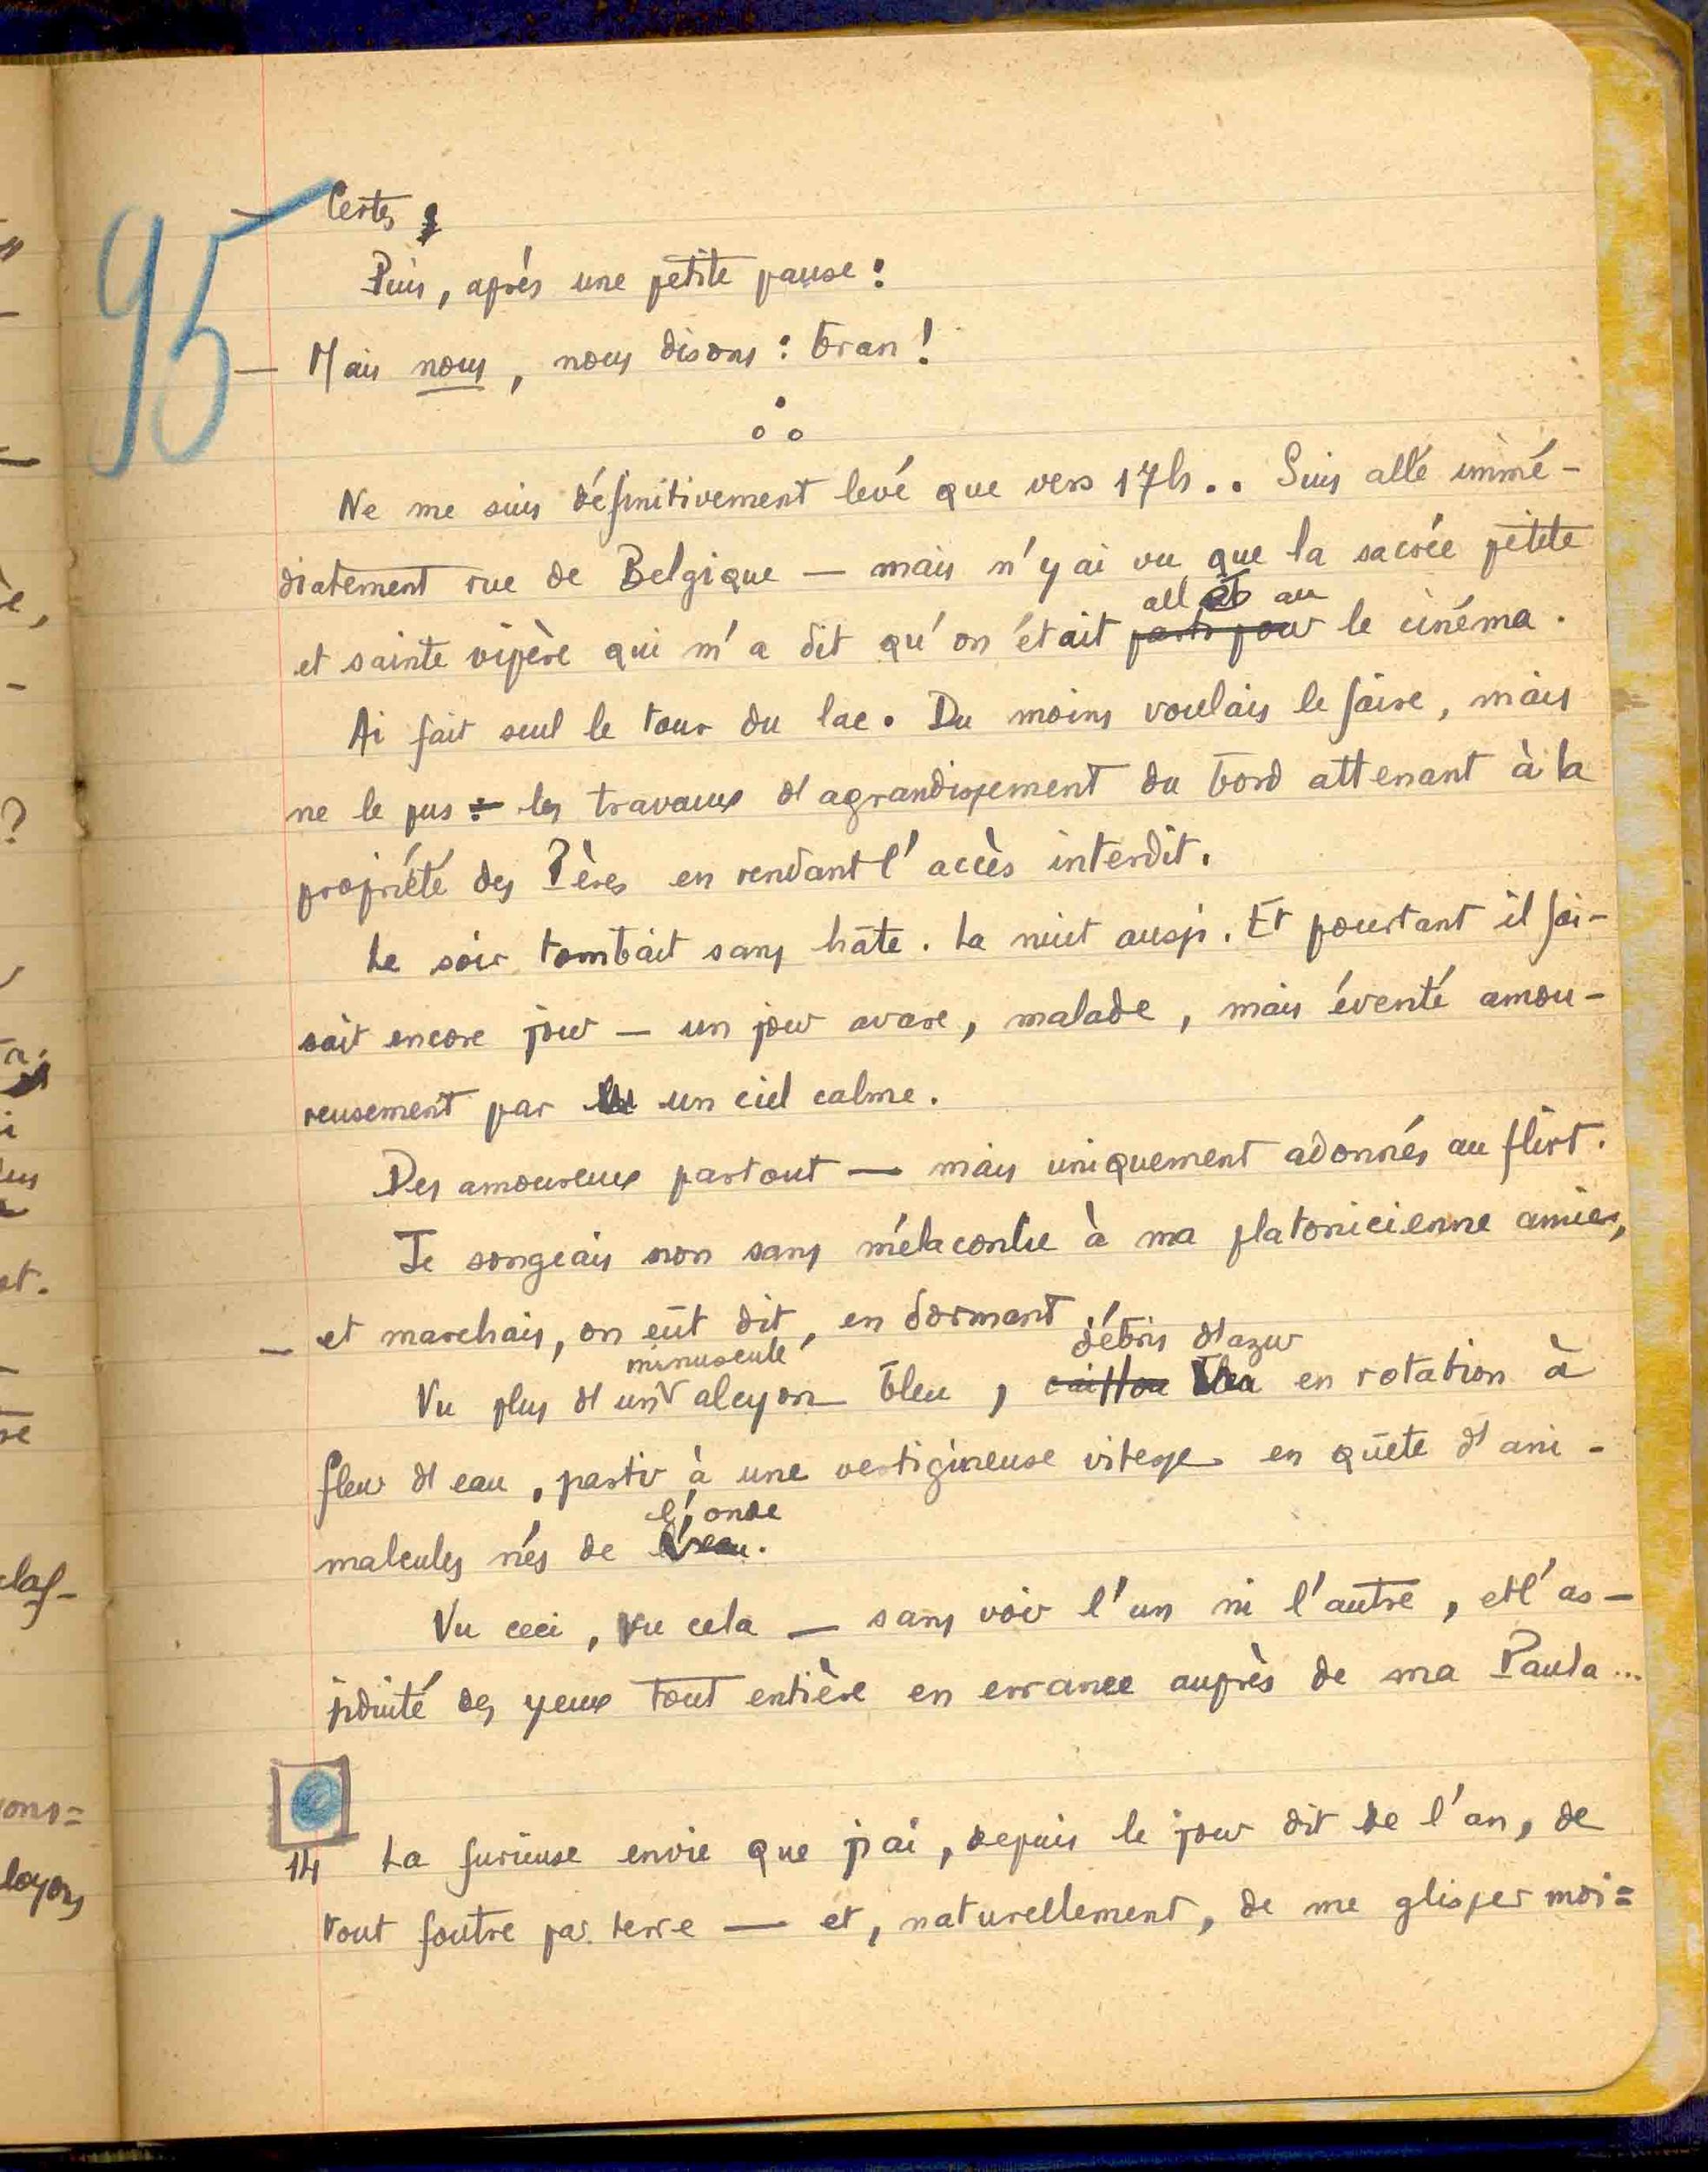 95
— Certes,
Puis, après une petite pause :
— Mais nous, nous disons : bran !
Ne me suis définitivement levé que vers 17h.. Suis allé immé-
diatement rue de Belgique — mais n'y ai vu que la sacrée petite
all au
et sainte vipère qui m'a dit qu'on était parti pour le cinéma.
Ai fait seul le tour du lac. Du moins voulais le faire, mais
ne le pus : les travaux d'agrandissement du bord attenant à la
propriété des Pères en rendant l'accès interdit.
Le soir tombait sans hâte. La nuit aussi. Et pourtant il fai-
sait encore jour — un jour avare, malade, mais éventé amou-
reusement par un ciel calme.
Des amoureux partout — mais uniquement adonnés au flirt.
Je songeais non sans mélaconlie à ma platonicienne amie,
— et marchais, on eût dit, en dormant.
minuscule débris d'azur
Vu plus d'un alcyon bleu, caillou bleu en rotation à
fleur d'eau, partir à une vertigineuse vitesse en quête d'ani-
l'onde
malcules nés de l'eau.
Vu ceci, vu cela — sans voir l'un ni l'autre, et l'as-
siduité des yeux tout entière en errance auprès de ma Paula...
14 La furieuse envie que j'ai, depuis le jour dit de l'an, de
tout foutre par terre — et, naturellement, de me glisser moi=